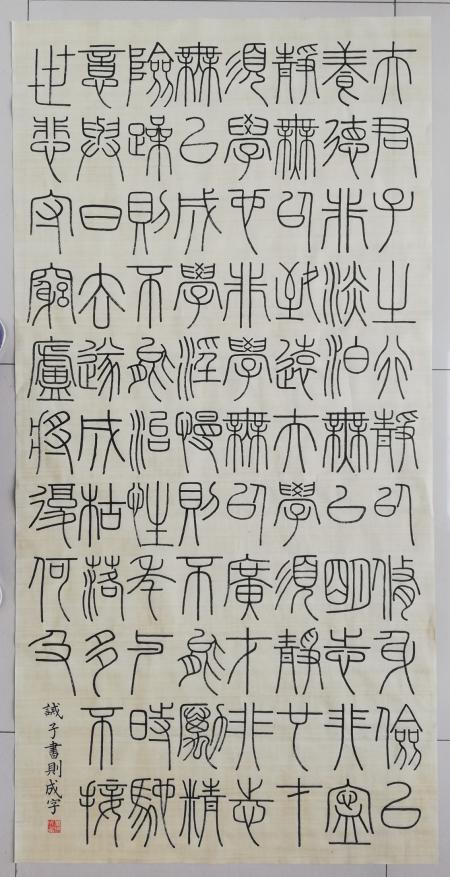 夫君子之行靜以脩身儉以
養德非淡泊無以明志非寧
靜無以致遠夫學須靜也才
須學也非學無以廣才非志
無以成學淫慢則不能勵精
險躁則不能治性年與時馳
意與日去遂成枯落多不接
世悲守窮廬將復何及
誡子書則成字